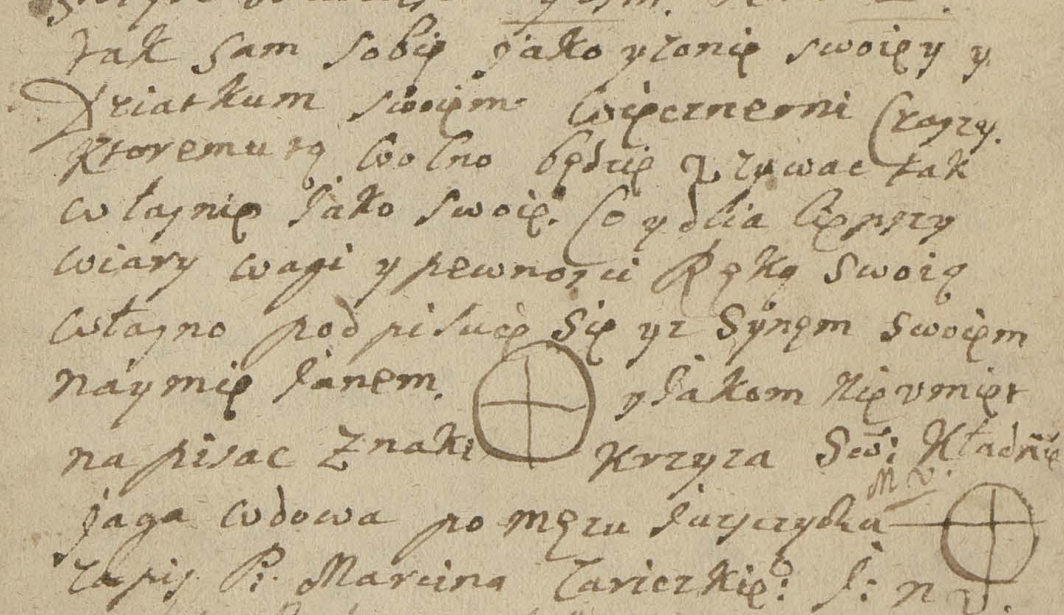 tak sam sobię jako y zonię swoięy y
Dziatkum swoięm więcznemi Czasy.
Ktoremu tą wolno będzię uzywac tak
własnię jako swoię. Co y dlia liepszy
wiary wagi y pewnosci Rękę swoią
własno podpisuię się y z Synęm swoięm
naymię Janem. y Jakom nię umięt
napisac Znaki Krzyza Sw: Kładnię
jaga wdowa po męzu
zapis P: Marcina J: n